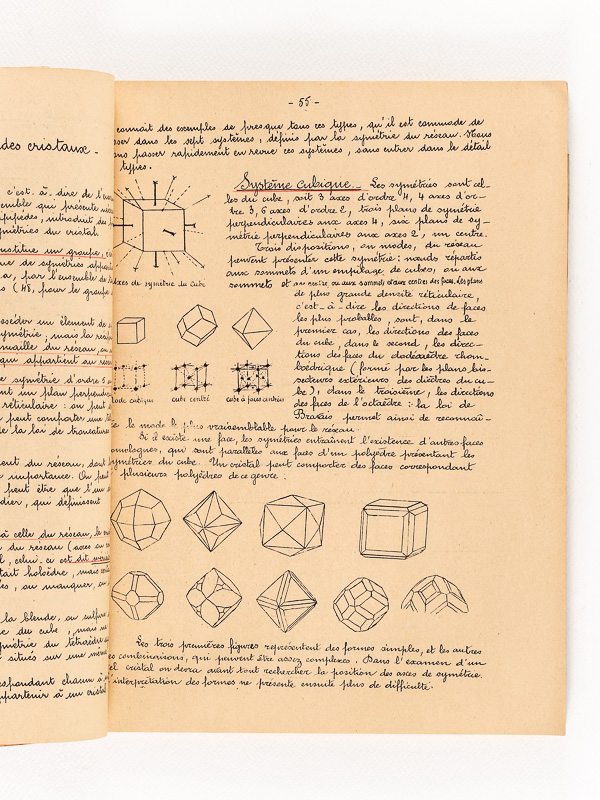 des cristaux -
c'est à dire de l'en
semble qui présente
appipèdes, introduit des
métries du cristal.
constitue un groupe,
de symétries
a, par l'ensemble de
s (48, pour le groupe
sséder un élément de
symétrie, mais la
maille du réseau, en
qui appartient au rése
symétrie d'ordre 5
nt un plan perpendicu
réticulaire : on peut
peut comporter une
de la loi de troncatures
ment du réseau, dont
importance. On peut
peut être que l'un
dier, qui définissent
à celle du réseau, le cris
du réseau (axes ou
l, celui-ci est dit
tait holoèdre, mais
és, ou manquer, en
la blende, ou sulfure
du cube, mais
ymétrie du tétraèdre
situés sur une même
spondant chacun à
ppartenir à un cristal
- 55 -
connait des exemples de presque tous ces types, qu'il est commode de
sser dans les sept systèmes, définis par la symétrie du réseau. Nous
ons passer rapidement en revue ces systèmes, sans entrer dans le détail
types.
Système cubique. Les symétries sont cel-
les du cube, soit 3 axes d'ordre 4, 4 axes d'or-
dre 3, 6 axes d'ordre 2, trois plans de symétrie
perpendiculaires aux axes 4, six plans de sy-
métrie perpendiculaires aux axes 2, un centre.
Trois dispositions, ou modes, du réseau
peuvent présenter cette symétrie : nœuds répartis
aux sommets d'un empilage de cubes, ou aux
sommets et au centre ou aux sommets et aux centres des faces. Les plans
axes de symétrie du Cube
de plus grande densité réticulaire,
c'est-à-dire les directions de faces
les plus probables, sont, dans le
premier cas, les directions des faces
du cube, dans le second, les direc-
tions des faces du dodécaèdre rhom-
boédrique (formé par les plans bis-
secteurs extérieurs des dièdres du cu-
be), dans le troisième, les directions
des faces de l'octaèdre : la loi de
Bravais permet ainsi de reconnaî-
mode cubique
cube centré
cube à faces centrées
tre le mode le plus vraisemblable pour le réseau.
Si il existe une face, les symétries entraînent l'existence d'autres faces
omologues, qui sont parallèles aux faces d'un polyèdre présentant les
symétries du cube. Un cristal peut comporter des faces correspondant
plusieurs polyèdres de ce genre :
Les trois premières figures représentent des formes simples, et les autres
es combinaisons, qui peuvent être assez complexes. Dans l'examen d'un
el cristal on devra avant tout rechercher la position des axes de symétrie.
interprétation des formes ne présente ensuite plus de difficulté.